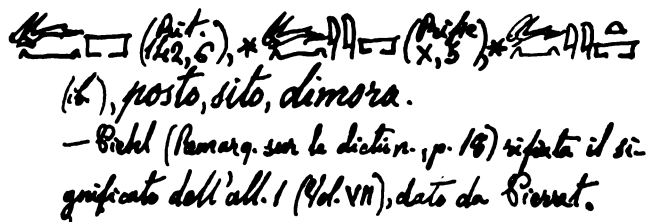 (Rit. 142,6), * (Prisse X,5), *
(ib.), posto, sito, dimora.
— Piehl (Remarq. sur le p. 18) rifiuta il si-
gnificato dell'all. 1 (Vol. VII), dato da Pierret.